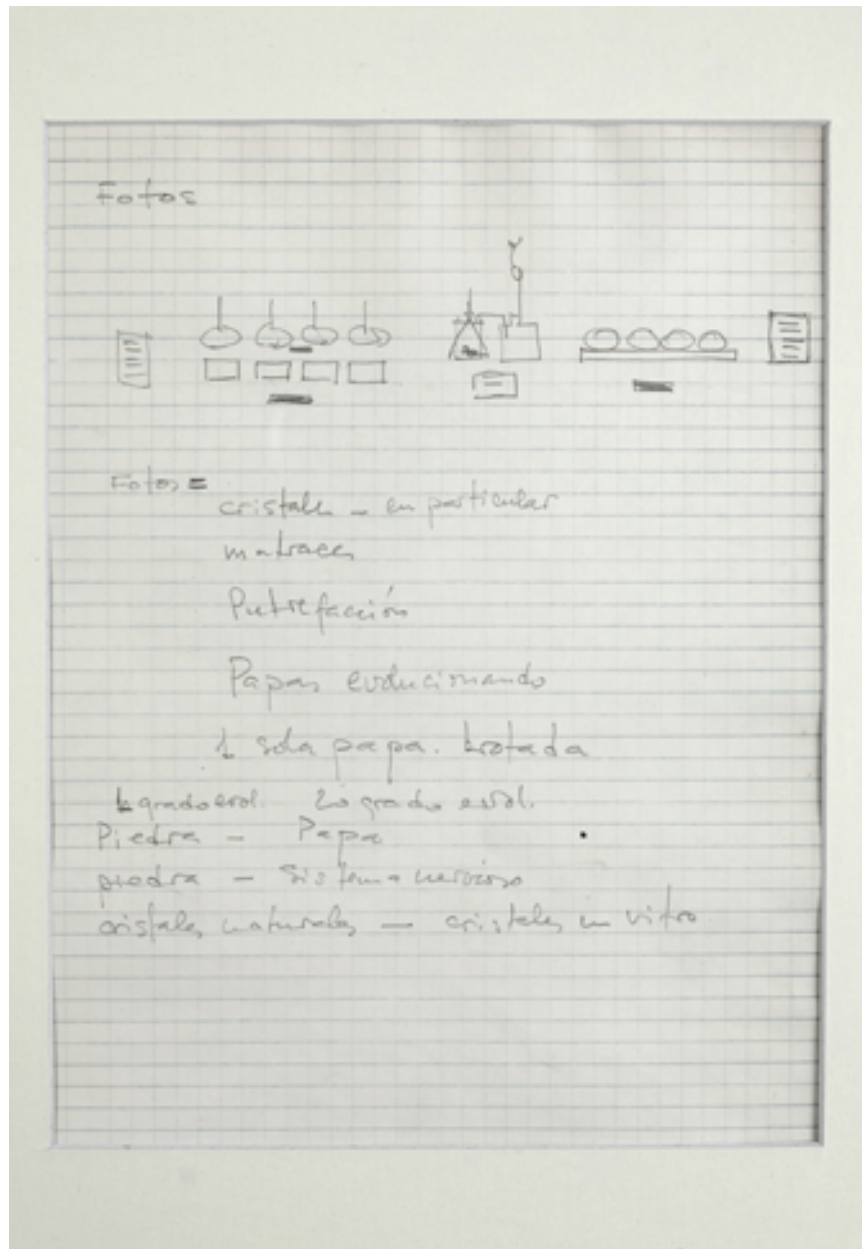 Fotos
Fotos =
cristales - en particular
matraces
Putrefacción
Papas evolucionando
1 sola papa. brotada
1o grado evol. 2o grado evol.
Piedra - Papa
piedra - Sistema nervioso
cristales naturales - cristales in vitro